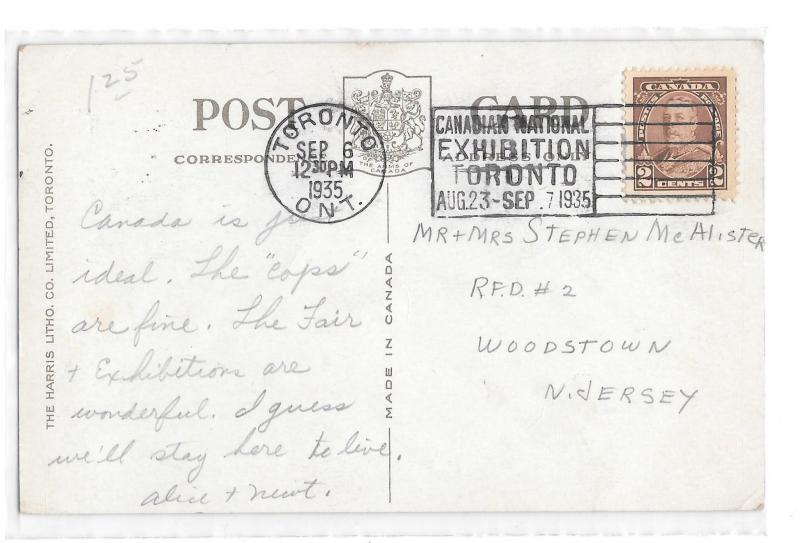 1 25
POST CARD
THE ARMS OF CANADA
CORRESPONDENCE
ADDRESS ONLY
TORONTO
SEP 6
12 30 PM
1935
ONT.
CANADIAN NATIONAL
EXHIBITION
TORONTO
AUG.23-SEP.7 1935
CANADA
POSTES POSTAGE
2 CENTS 2
Canada is just
ideal. The "cops"
are fine. The Fair
+ Exhibitions are
wonderful. I guess
we'll stay here to live.
alice + newt.
MR + MRS STEPHEN McAlister
R.F.D. # 2
WOODSTOWN
N. JERSEY
THE HARRIS LITHO. CO. LIMITED, TORONTO.
MADE IN CANADA